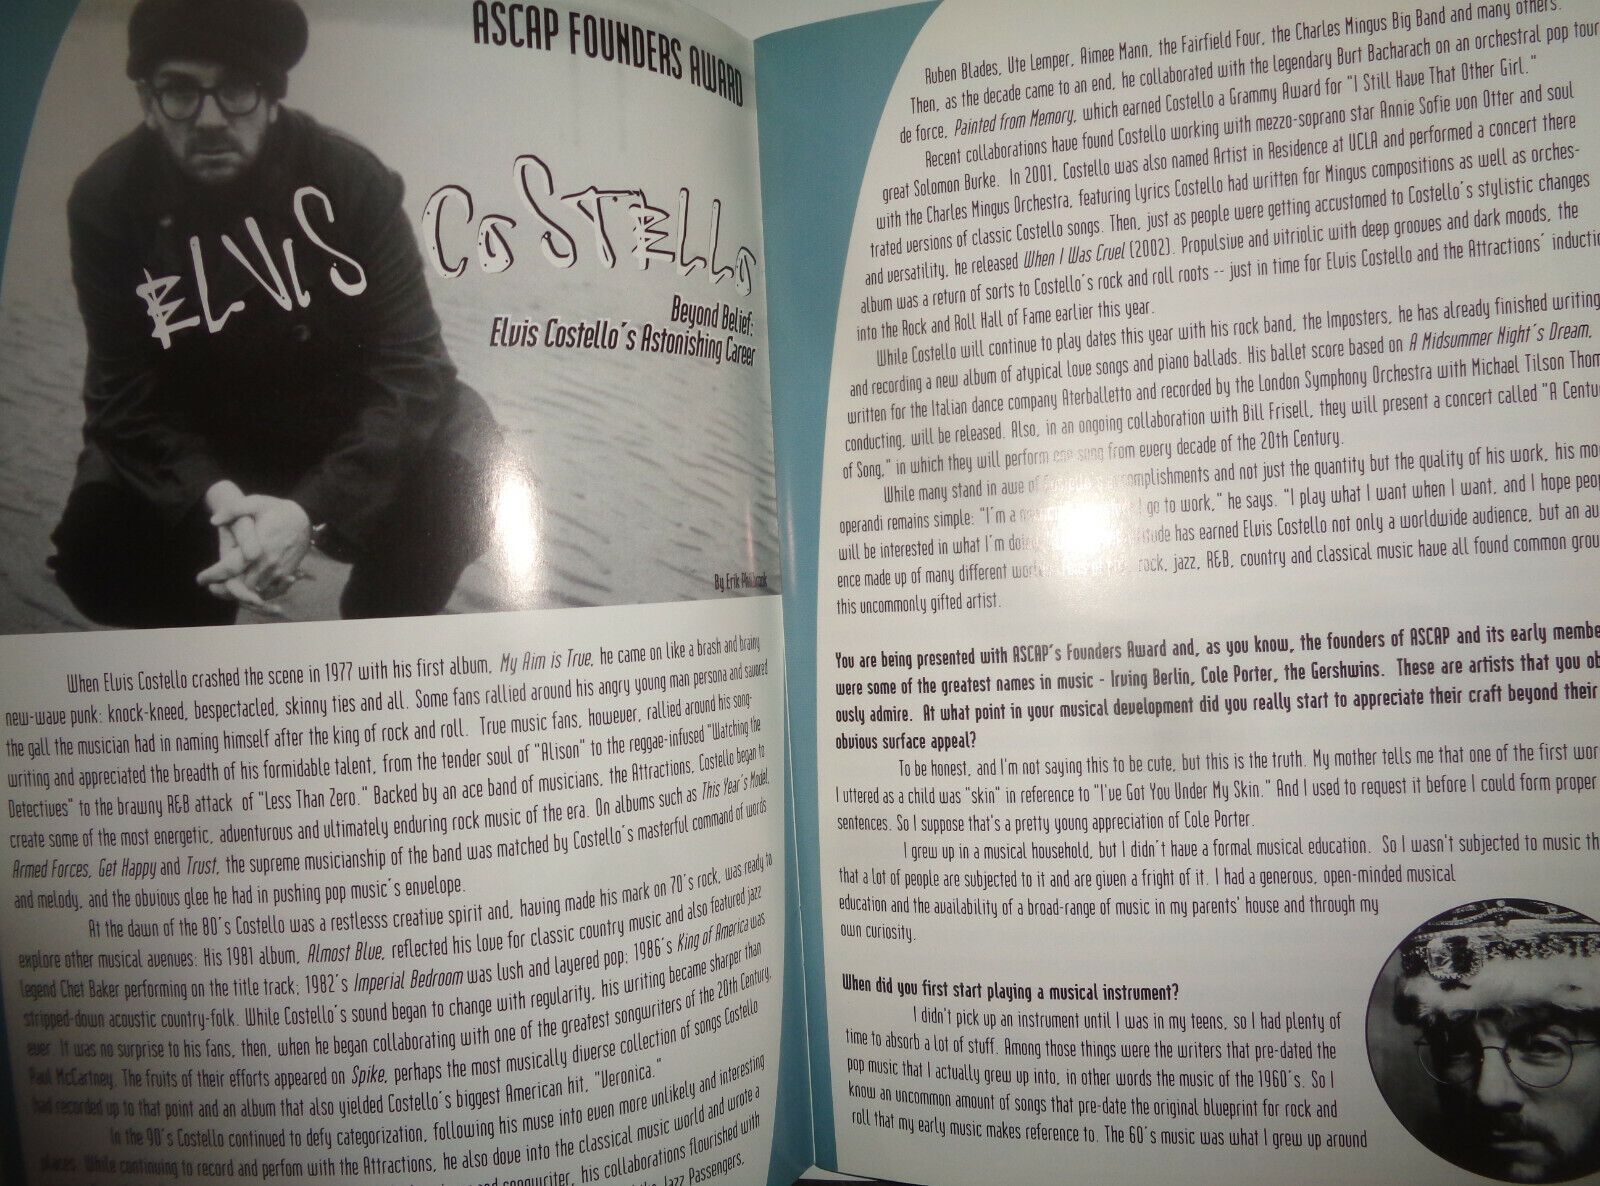 ASCAP FOUNDERS AWARD
ELVIS COSTELLO
Beyond Belief:
Elvis Costello's Astonishing Career
By Erik
When Elvis Costello crashed the scene in 1977 with his first album, My Aim is True, he came on like a brash and brainy
new-wave punk: knock-kneed, bespectacled, skinny ties and all. Some fans rallied around his angry young man persona and savored
the gall the musician had in naming himself after the king of rock and roll. True music fans, however, rallied around his song-
writing and appreciated the breadth of his formidable talent, from the tender soul of "Alison" to the reggae-infused "Watching the
Detectives" to the brawny R&B attack of "Less Than Zero." Backed by an ace band of musicians, the Attractions, Costello began to
create some of the most energetic, adventurous and ultimately enduring rock music of the era. On albums such as This Year's Model,
Armed Forces, Get Happy and Trust, the supreme musicianship of the band was matched by Costello's masterful command of words
and melody, and the obvious glee he had in pushing pop music's envelope.
At the dawn of the 80's Costello was a restlesss creative spirit and, having made his mark on 70's rock, was ready to
explore other musical avenues: His 1981 album, Almost Blue, reflected his love for classic country music and also featured jazz
legend Chet Baker performing on the title track; 1982's Imperial Bedroom was lush and layered pop; 1986's King of America was
stripped-down acoustic country-folk. While Costello's sound began to change with regularity, his writing became sharper than
ever. It was no surprise to his fans, then, when he began collaborating with one of the greatest songwriters of the 20th Century,
Paul McCartney. The fruits of their efforts appeared on Spike, perhaps the most musically diverse collection of songs Costello
had recorded up to that point and an album that also yielded Costello's biggest American hit, "Veronica."
In the 90's Costello continued to defy categorization, following his muse into even more unlikely and interesting
places. While continuing to record and perfom with the Attractions, he also dove into the classical music world and wrote a
and songwriter, his collaborations flourished with
the Jazz Passengers,
Ruben Blades, Ute Lemper, Aimee Mann, the Fairfield Four, the Charles Mingus Big Band and many others.
Then, as the decade came to an end, he collaborated with the legendary Burt Bacharach on an orchestral pop tour
de force, Painted from Memory, which earned Costello a Grammy Award for "I Still Have That Other Girl."
Recent collaborations have found Costello working with mezzo-soprano star Annie Sofie von Otter and soul
great Solomon Burke. In 2001, Costello was also named Artist in Residence at UCLA and performed a concert there
with the Charles Mingus Orchestra, featuring lyrics Costello had written for Mingus compositions as well as orches-
trated versions of classic Costello songs. Then, just as people were getting accustomed to Costello's stylistic changes
and versatility, he released When I Was Cruel (2002). Propulsive and vitriolic with deep grooves and dark moods, the
album was a return of sorts to Costello's rock and roll roots -- just in time for Elvis Costello and the Attractions' inductio
into the Rock and Roll Hall of Fame earlier this year.
While Costello will continue to play dates this year with his rock band, the Imposters, he has already finished writing
and recording a new album of atypical love songs and piano ballads. His ballet score based on A Midsummer Night's Dream,
written for the Italian dance company Aterballetto and recorded by the London Symphony Orchestra with Michael Tilson Thom
conducting, will be released. Also, in an ongoing collaboration with Bill Frisell, they will present a concert called "A Centu
of Song," in which they will perform one song from every decade of the 20th Century.
While many stand in awe of Costello's accomplishments and not just the quantity but the quality of his work, his mo
operandi remains simple: "I'm a I go to work," he says. "I play what I want when I want, and I hope peop
will be interested in what I'm has earned Elvis Costello not only a worldwide audience, but an au
ence made up of many different rock, jazz, R&B, country and classical music have all found common grou
this uncommonly gifted artist.
You are being presented with ASCAP's Founders Award and, as you know, the founders of ASCAP and its early membe
were some of the greatest names in music - Irving Berlin, Cole Porter, the Gershwins. These are artists that you ob
ously admire. At what point in your musical development did you really start to appreciate their craft beyond their
obvious surface appeal?
To be honest, and I'm not saying this to be cute, but this is the truth. My mother tells me that one of the first wor
I uttered as a child was "skin" in reference to "I've Got You Under My Skin." And I used to request it before I could form proper
sentences. So I suppose that's a pretty young appreciation of Cole Porter.
I grew up in a musical household, but I didn't have a formal musical education. So I wasn't subjected to music th
that a lot of people are subjected to it and are given a fright of it. I had a generous, open-minded musical
education and the availability of a broad-range of music in my parents' house and through my
own curiosity.
When did you first start playing a musical instrument?
I didn't pick up an instrument until I was in my teens, so I had plenty of
time to absorb a lot of stuff. Among those things were the writers that pre-dated the
pop music that I actually grew up into, in other words the music of the 1960's. So I
know an uncommon amount of songs that pre-date the original blueprint for rock and
roll that my early music makes reference to. The 60's music was what I grew up around